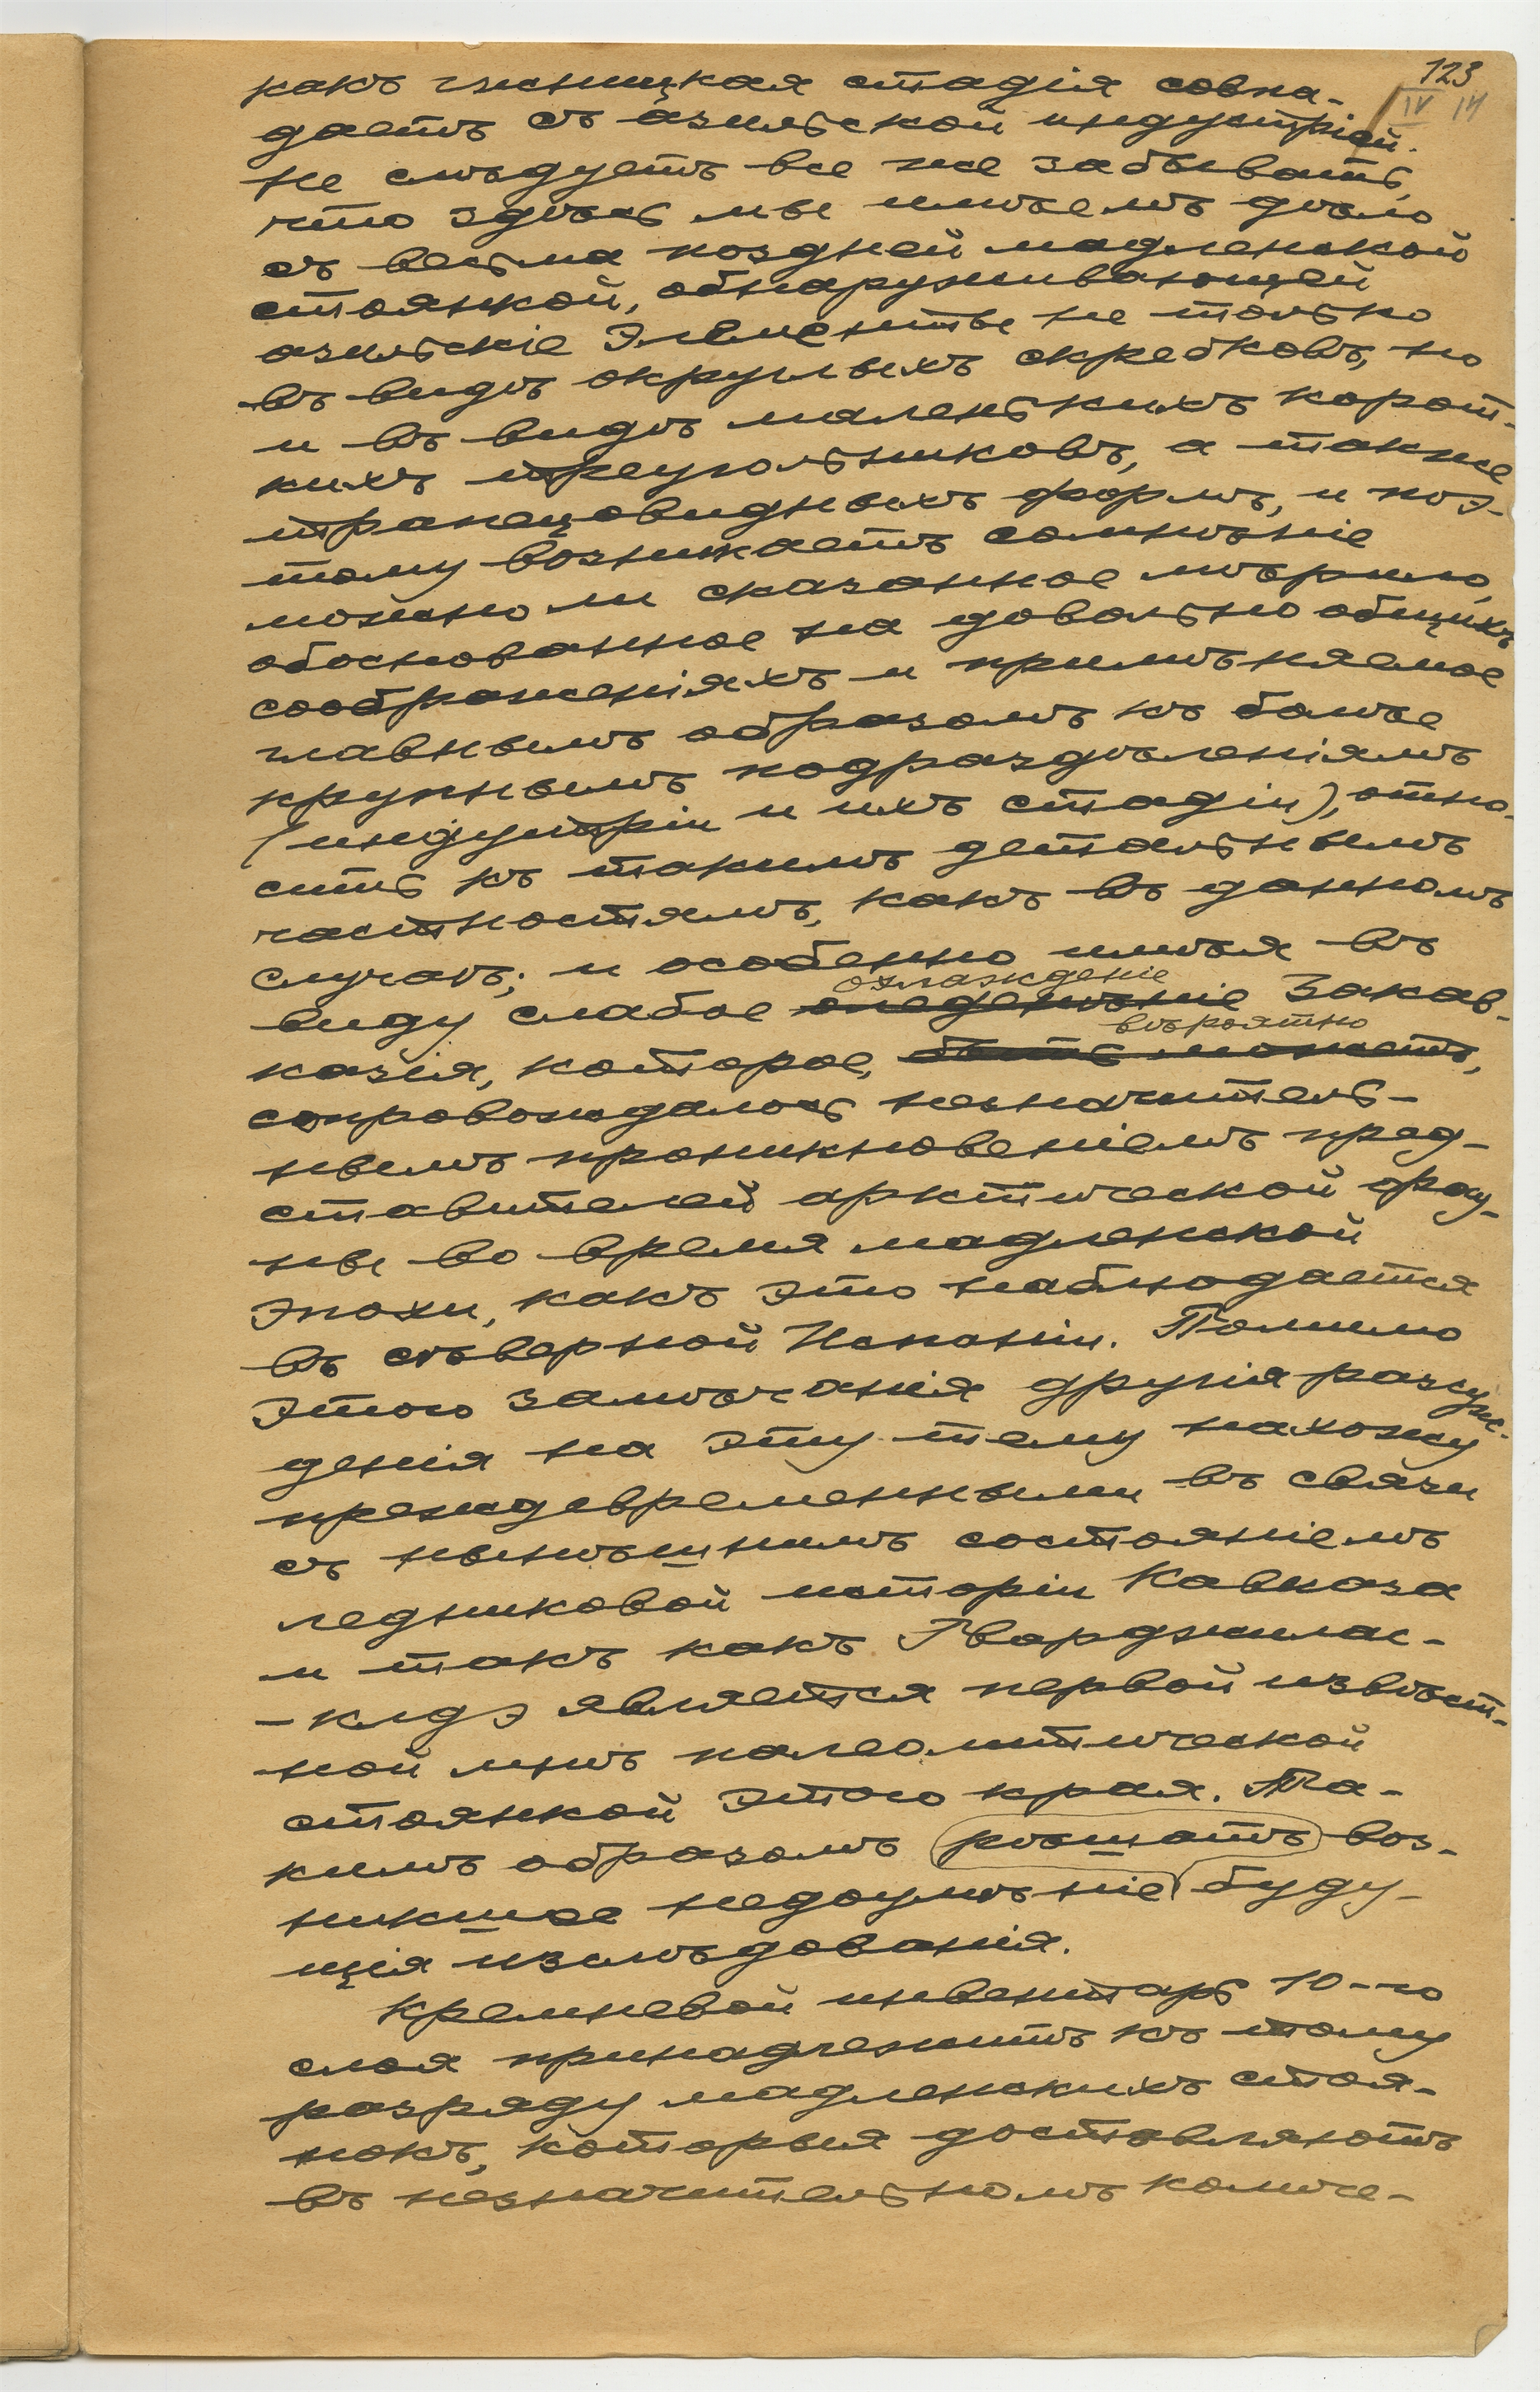 123
IV 14
какъ гшницкая стадія совпа-
даетъ съ азильской индустріей.
Не слѣдуетъ все же забывать,
что здѣсь мы имѣемъ дѣло
съ весьма поздней мадленской
стоянкой, обнаруживающей
азильскіе элементы не только
въ видѣ округлыхъ скребковъ, но
и въ видѣ маленькихъ корот-
кихъ треугольниковъ, а также
трапецовидныхъ формъ, и поэ-
тому возникаетъ сомнѣніе
можно ли сказанное мѣрило,
обоснованное на довольно общихъ
соображеніяхъ и примѣняемое
главнымъ образомъ къ болѣе
крупнымъ подраздѣленіямъ
(индустріи и ихъ стадіи), отно-
сить къ такимъ детальнымъ
частностямъ, какъ въ данномъ
случаѣ; и особенно имѣя въ
охлажденіе
виду слабое оледенѣніе Закав-
вѣроятно
казія, которое, быть можетъ,
сопровождалось незначитель-
нымъ проникновеніемъ пред-
ставителей арктической фау-
ны во время мадленской
эпохи, какъ это наблюдается
въ сѣверной Испаніи. Помимо
этого замѣчанія другія разсуж-
денія на эту тему нахожу
преждевременными въ связи
съ нынѣшнимъ состояніемъ
ледниковой исторіи Кавказа
и такъ какъ Гварджилас-
-клдэ является первой извѣст-
ной мнѣ палеолитической
стоянкой этого края. Та-
кимъ образомъ рѣшатъ воз-
никшее недоумѣніе буду-
щія изслѣдованія.
Кремневой инвентарь 10-го
слоя принадлежитъ къ тому
разряду мадленскихъ стоя-
нокъ, которыя доставляютъ
въ незначительномъ количе-